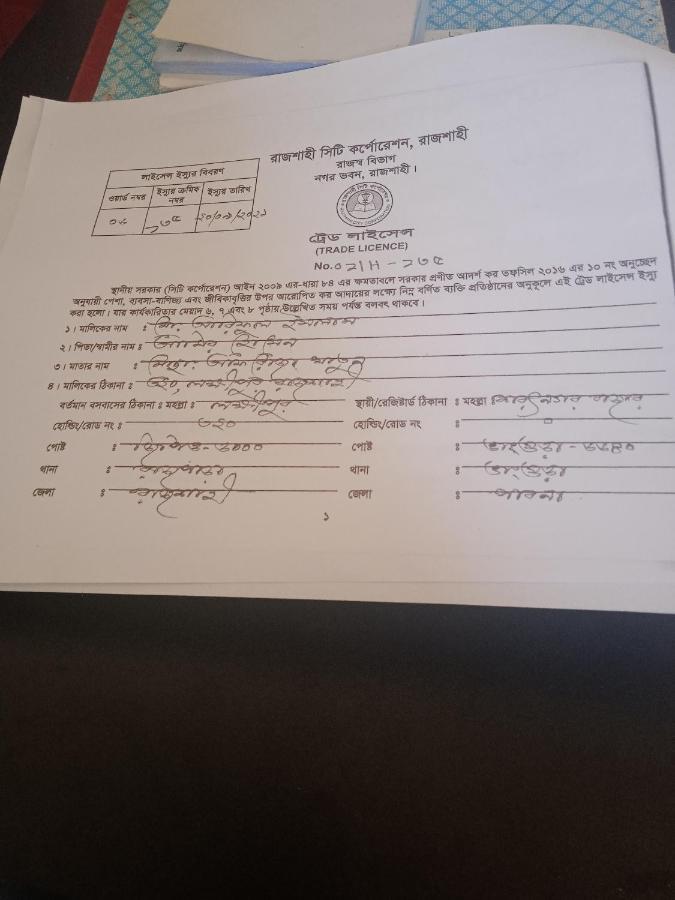 রাজশাহী সিটি কর্পোরেশন, রাজশাহী
রাজস্ব বিভাগ
নগর ভবন, রাজশাহী।
লাইসেন্স ইস্যুর বিবরণ
ওয়ার্ড নম্বর ইস্যুর ক্রমিক নম্বর ইস্যুর তারিখ
০৮ ২৭৫
ট্রেড লাইসেন্স
(TRADE LICENCE)
No. ০21H - ২৭৫
স্থানীয় সরকার (সিটি কর্পোরেশন) আইন ২০০৯ এর-ধারা ৮৪ এর ক্ষমতাবলে সরকার প্রণীত আদর্শ কর তফসিল ২০১৬ এর ১০ নং অনুচ্ছেদ
অনুযায়ী পেশা, ব্যবসা-বাণিজ্য এবং জীবিকাবৃত্তির উপর আরোপিত কর আদায়ের লক্ষ্যে নিম্ন বর্ণিত ব্যক্তি প্রতিষ্ঠানের অনুকূলে এই ট্রেড লাইসেন্স ইস্যু
করা হলো। যার কার্যকারিতার মেয়াদ ৬, ৭ এবং ৮ পৃষ্ঠায় উল্লেখিত সময় পর্যন্ত বলবৎ থাকবে।
১। মালিকের নাম : ইসলাম
২। পিতা/স্বামীর নাম :
৩। মাতার নাম : খাতুন
৪। মালিকের ঠিকানা : ৩২০, লক্ষ্মীপুর রাজশাহী
বর্তমান বসবাসের ঠিকানা : মহল্লা : লক্ষ্মীপুর স্থায়ী/রেজিষ্টার্ড ঠিকানা : মহল্লা :
হোল্ডিং/রোড নং : ৩২০ হোল্ডিং/রোড নং : ০
পোষ্ট : জিপিও-৬০০০ পোষ্ট : ভাঙ্গুড়া - ৬৬৪০
থানা : রাজপাড়া থানা : ভাঙ্গুড়া
জেলা : রাজশাহী জেলা : পাবনা
১